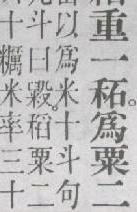 重一䄷。爲粟二
以爲米十斗句
斗曰毇。稻粟二
十糲米率三十